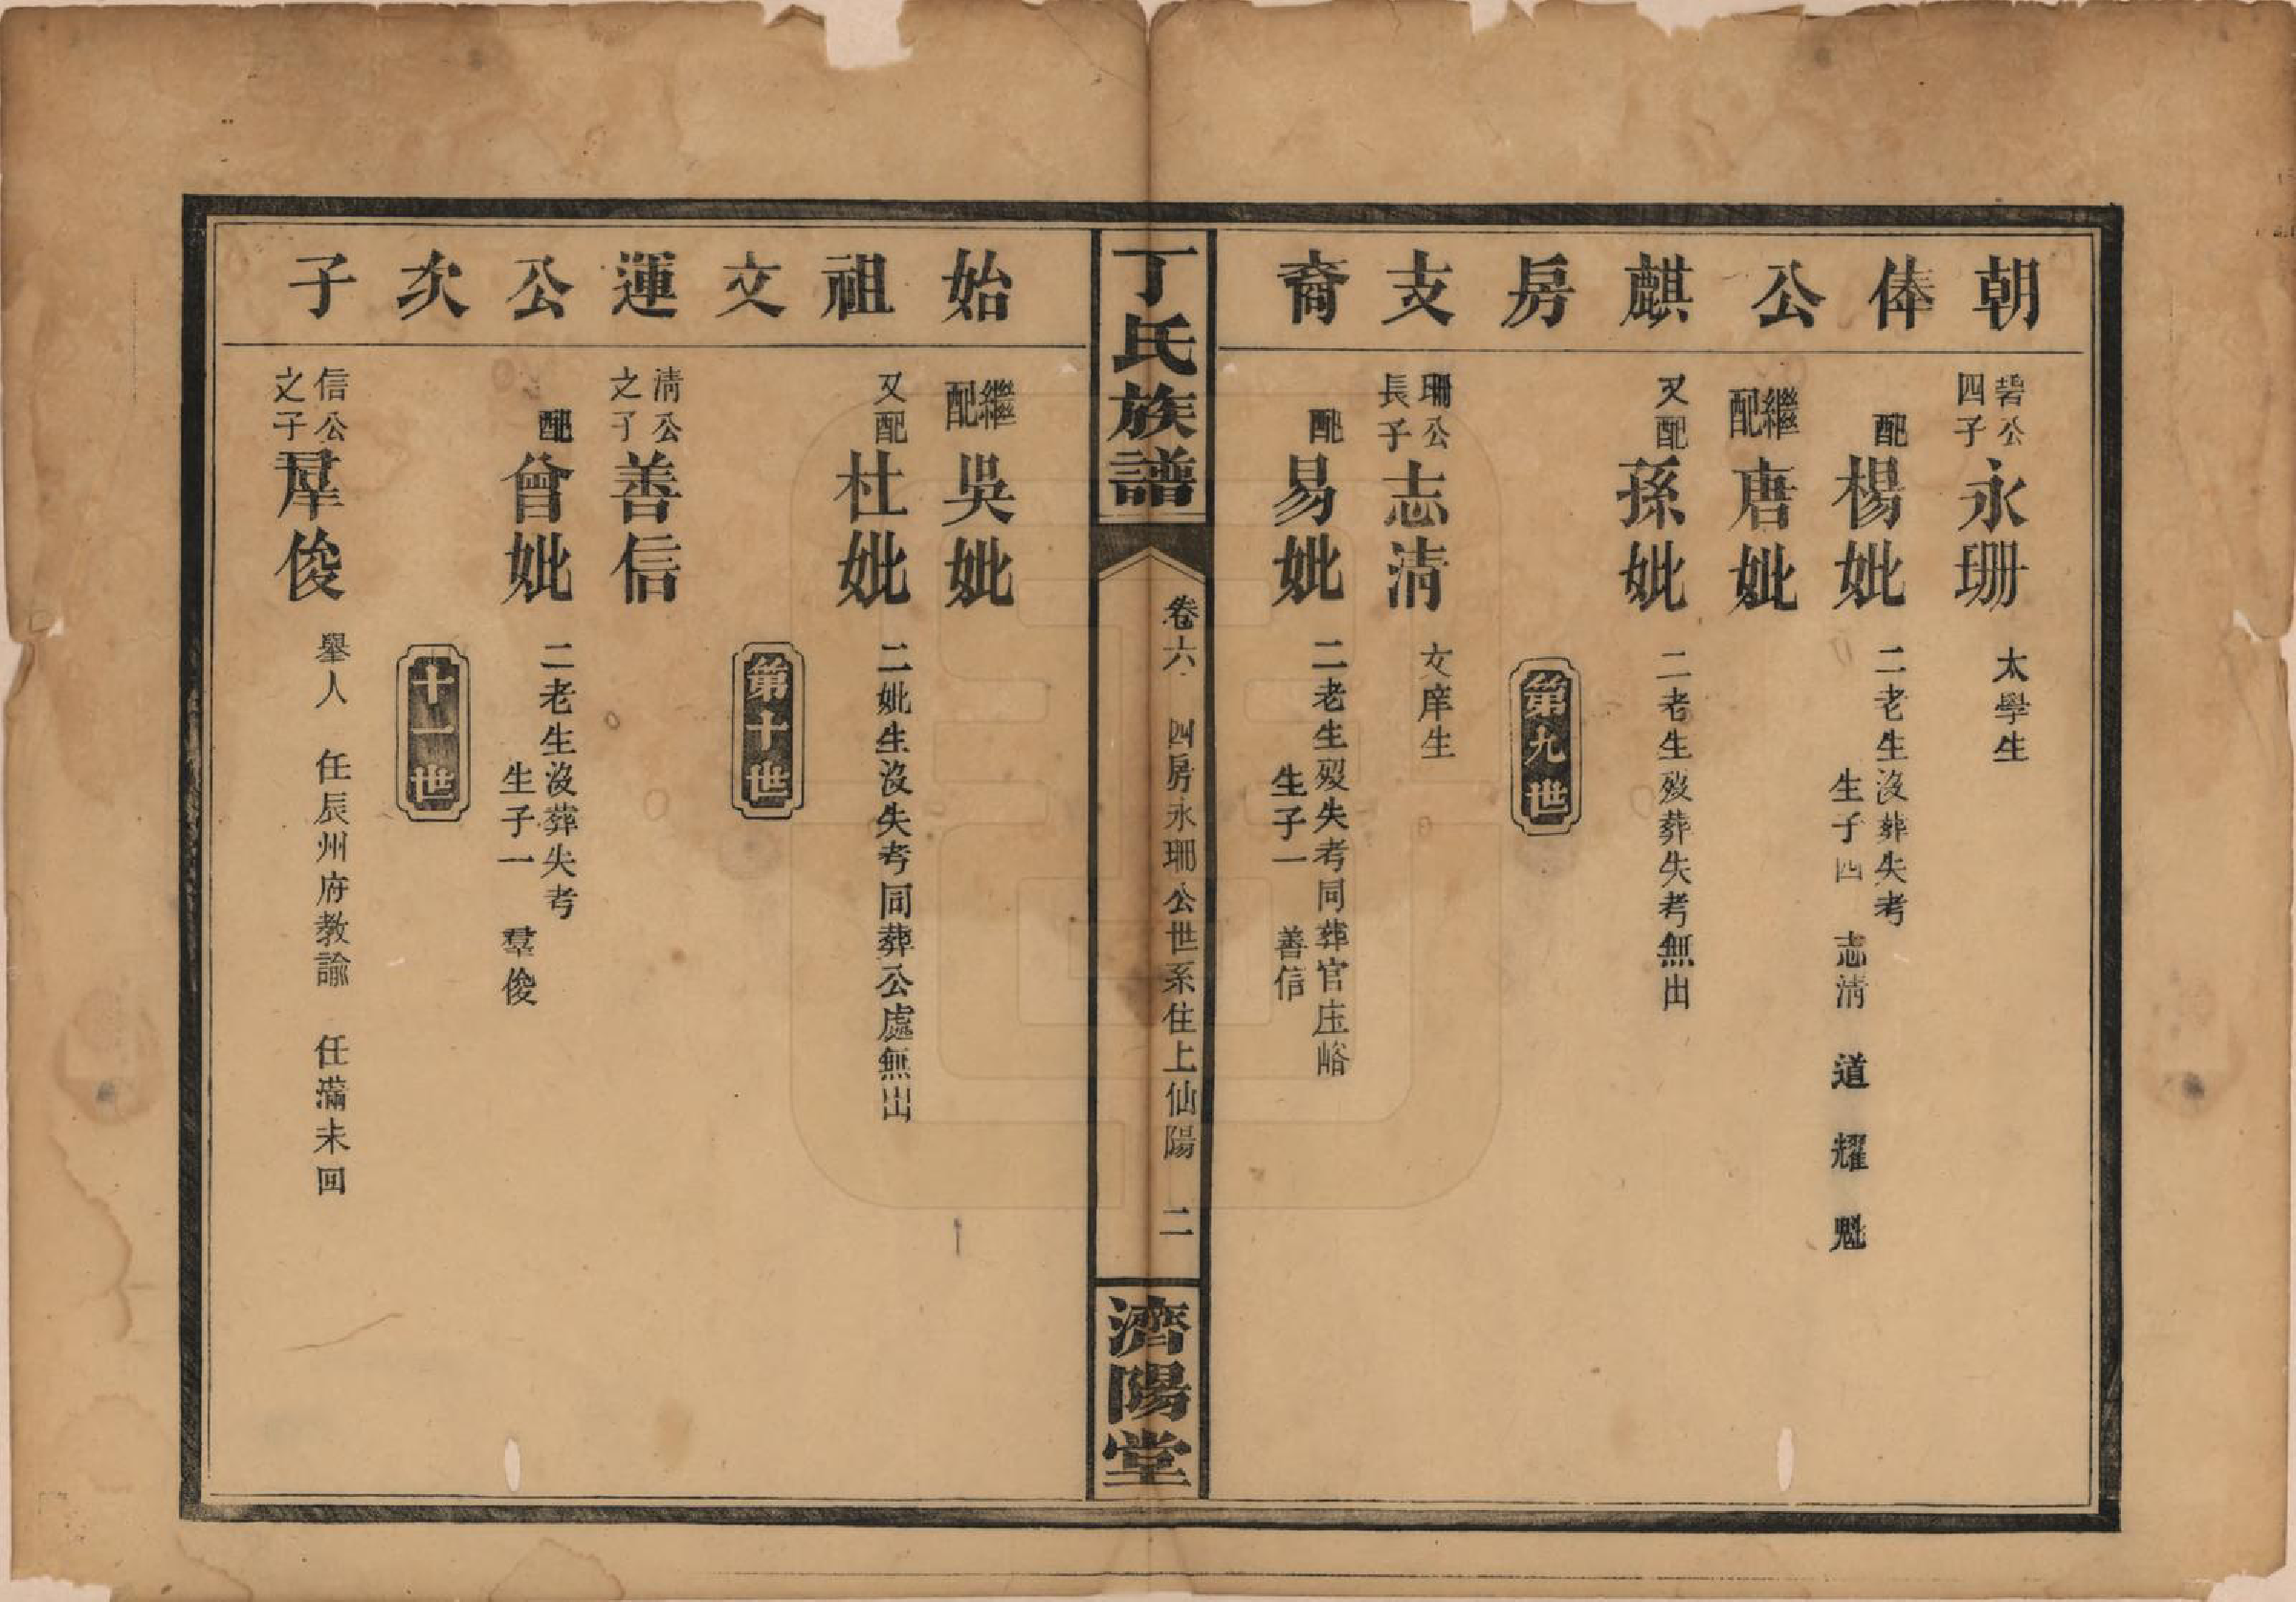 朝俸公麒房支裔
碧公
四子
永珊
太學生
配
楊妣
二老生沒葬失考
生子四 志清 道 耀 魁
繼
配
唐妣
又配
孫妣
二老生歿葬失考無出
第九世
珊公
長子
志清
文庠生
配
易妣
二老生歿失考同葬官庄峪
生子一 善信
丁氏族譜
卷六 四房永珊公世系住上仙陽 二
濟陽堂
始祖文運公次子
繼
配
吳妣
又配
杜妣
二妣生沒失考同葬公處無出
第十世
清公
之子
善信
配
曾妣
二老生沒葬失考
生子一 羣俊
十一世
信公
之子
羣俊
舉人 任辰州府教諭 任滿未囬